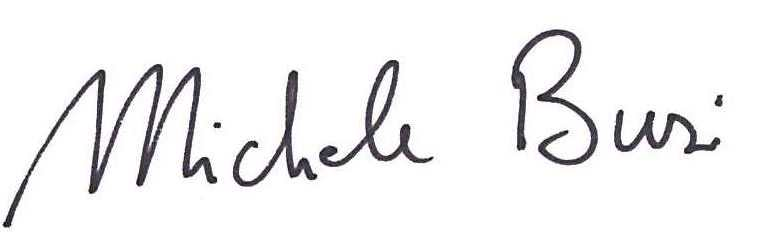 Michele Busi